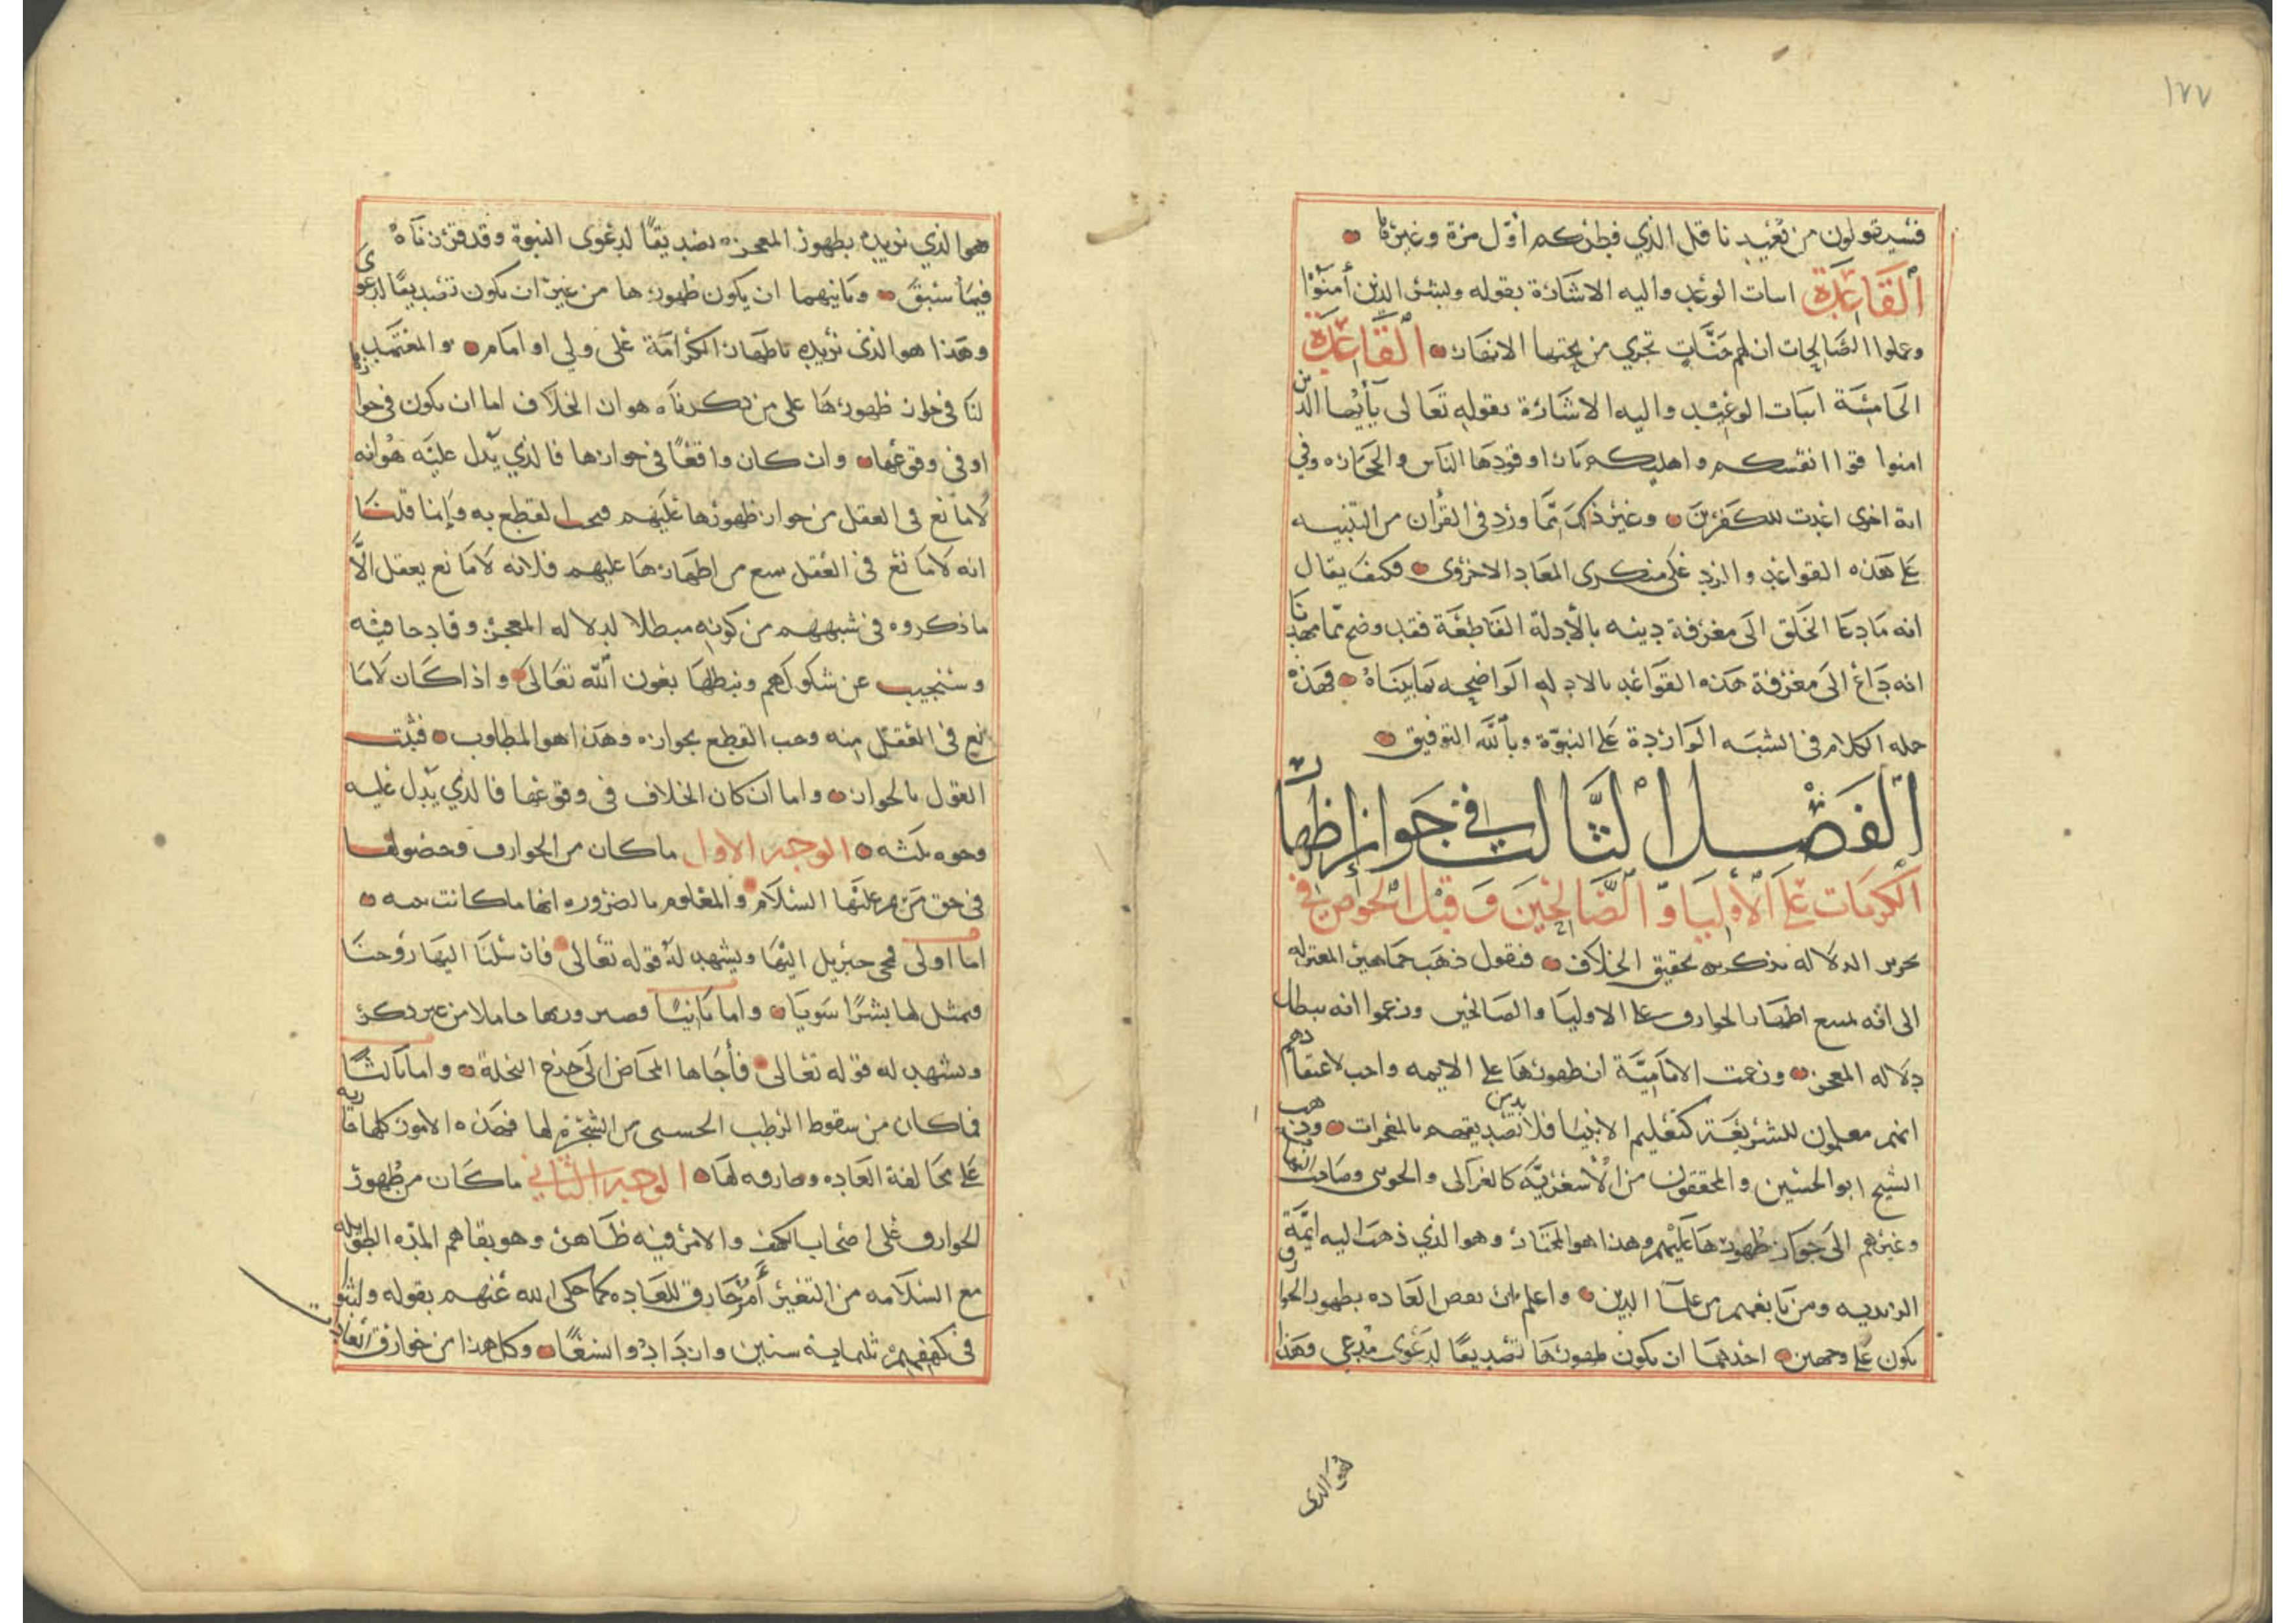 ١٧٧
فسيقولون من يعيدنا قل الذي فطركم أول مرة وغيرها
القاعدة اثبات الوعد واليه الاشارة بقوله وبشر الذين أمنوا
وعملوا الصالحات ان لهم جنات تجري من تحتها الانهار القاعدة
الخامسة اثبات الوعيد واليه الاشارة بقوله تعالى يأيها الذين
امنوا قوا انفسكم واهليكم نارا وقودها الناس والحجارة وفي
اية اخرى اعدت للكفرين وغير ذلك مما ورد في القرأن من التنبيه
على هذه القواعد والرد على منكرى المعاد الاخروى فكيف يقال
انه ما دعا الخلق الى معرفة دينه بالأدلة القاطعة فقد وضح بما مهدنا
انه داع الى معرفة هذه القواعد بالادله الواضحه كما بيناه فهذه
جمله الكلام فى الشبه الواردة على النبوة وبالله التوفيق
الفصل الثالث في جواز إظهار
الكرمات على الأوليا والصالحين وقبل الخوض في
تحرير الدلاله نذكر تحقيق الخلاف فنقول ذهب جماهير المعتزله
الى انه يمتنع اظهار الخوارق على الاوليا والصالحين وزعموا انه يبطل
دلاله المعجز وزعمت الامامية ان ظهورها على الايمه واجب لاعتقادهم
انهم معلمون للشريعة كتعليم الانبيا فلا بد من تصديقهم بالمعجزات وذهب
الشيخ ابو الحسين والمحققون من الأشعرية كالغزالى والجويني وصاحب النهاية
وغيرهم الى جواز ظهورها عليهم وهذا هو المختار وهو الذي ذهب اليه ايمة
الزيديه ومن تابعهم من علما الدين واعلم ان نقض العاده بظهور الخوارق
يكون على وجهين احدهما ان يكون ظهورها تصديقا لدعوى مدعي وهذا
هو الذي
هو الذي نريده بظهور المعجزه تصديقا لدعوى النبوة وقد قررناه
فيما سبق وثانيهما ان يكون ظهورها من غير ان يكون تصديقا لدعوى
وهذا هو الذي نريده باظهار الكرامة على ولي او امام والمعتمد
لنا في جواز ظهورها على من ذكرناه هو ان الخلاف اما ان يكون فى جوازها
او فى وقوعها وان كان واقعا فى جوازها فالذي يدل عليه هو انه
لا مانع فى العقل من جواز ظهورها عليهم فيجب القطع به وإنما قلنا
انه لا مانع فى العقل يمنع من اظهارها عليهم فلانه لا مانع يعقل الا
ما ذكروه فى شبههم من كونه مبطلا لدلاله المعجز وقادحا فيه
وسنجيب عن شكوكهم ونبطلها بعون الله تعالى واذا كان لا ما
نع فى العقل منه وجب القطع بجوازه وهذا هو المطلوب فثبت
القول بالجواز واما ان كان الخلاف فى وقوعها فالذي يدل عليه
وجوه ثلثه الوجه الاول ما كان من الخوارق وحصولها
فى حق مريم عليها السلام والمعلوم بالضروره انها ما كانت نبيه
اما اولى فمجى جبريل اليها ويشهد له قوله تعالى فارسلنا اليها روحنا
فتمثل لها بشرا سويا واما ثانيا فصيرورتها حاملا من غير ذكر
ويشهد له قوله تعالى فأجاها المخاض الى جذع النخلة واما ثالثا
فما كان من سقوط الرطب الجنى من الشجرة لها فهذه الامور كلها
على مخالفة العاده وخارقه لها الوجه الثاني ما كان من ظهور
الخوارق على اصحاب الكهف والامر فيه ظاهر وهو بقاهم المدة الطويله
مع السلامه من التغير أمر خارق للعاده كما حكى الله عنهم بقوله ولبثوا
فى كهفهم ثلثماية سنين وازدادوا تسعا وكل هذا من خوارق العادات